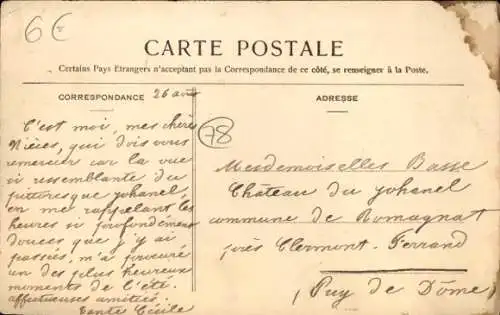 6€
CARTE POSTALE
Certains Pays Etrangers n'acceptant pas la Correspondance de ce côté, se renseigner à la Poste.
CORRESPONDANCE 26 août
ADRESSE
78
C'est moi, mes chères
Nièces, qui dois vous
remercier car la vue
si ressemblante du
pittoresque Johanel,
en me rappelant les
heures si profondément
douces que j'y ai
passées, m'a procuré
un des plus heureux
moments de l'été.
affectueuses amitiés.
Tante Cécile
Mesdemoiselles Basse
Château du Johanel
commune de Romagnat
près Clermont-Ferrand
(Puy de Dôme)